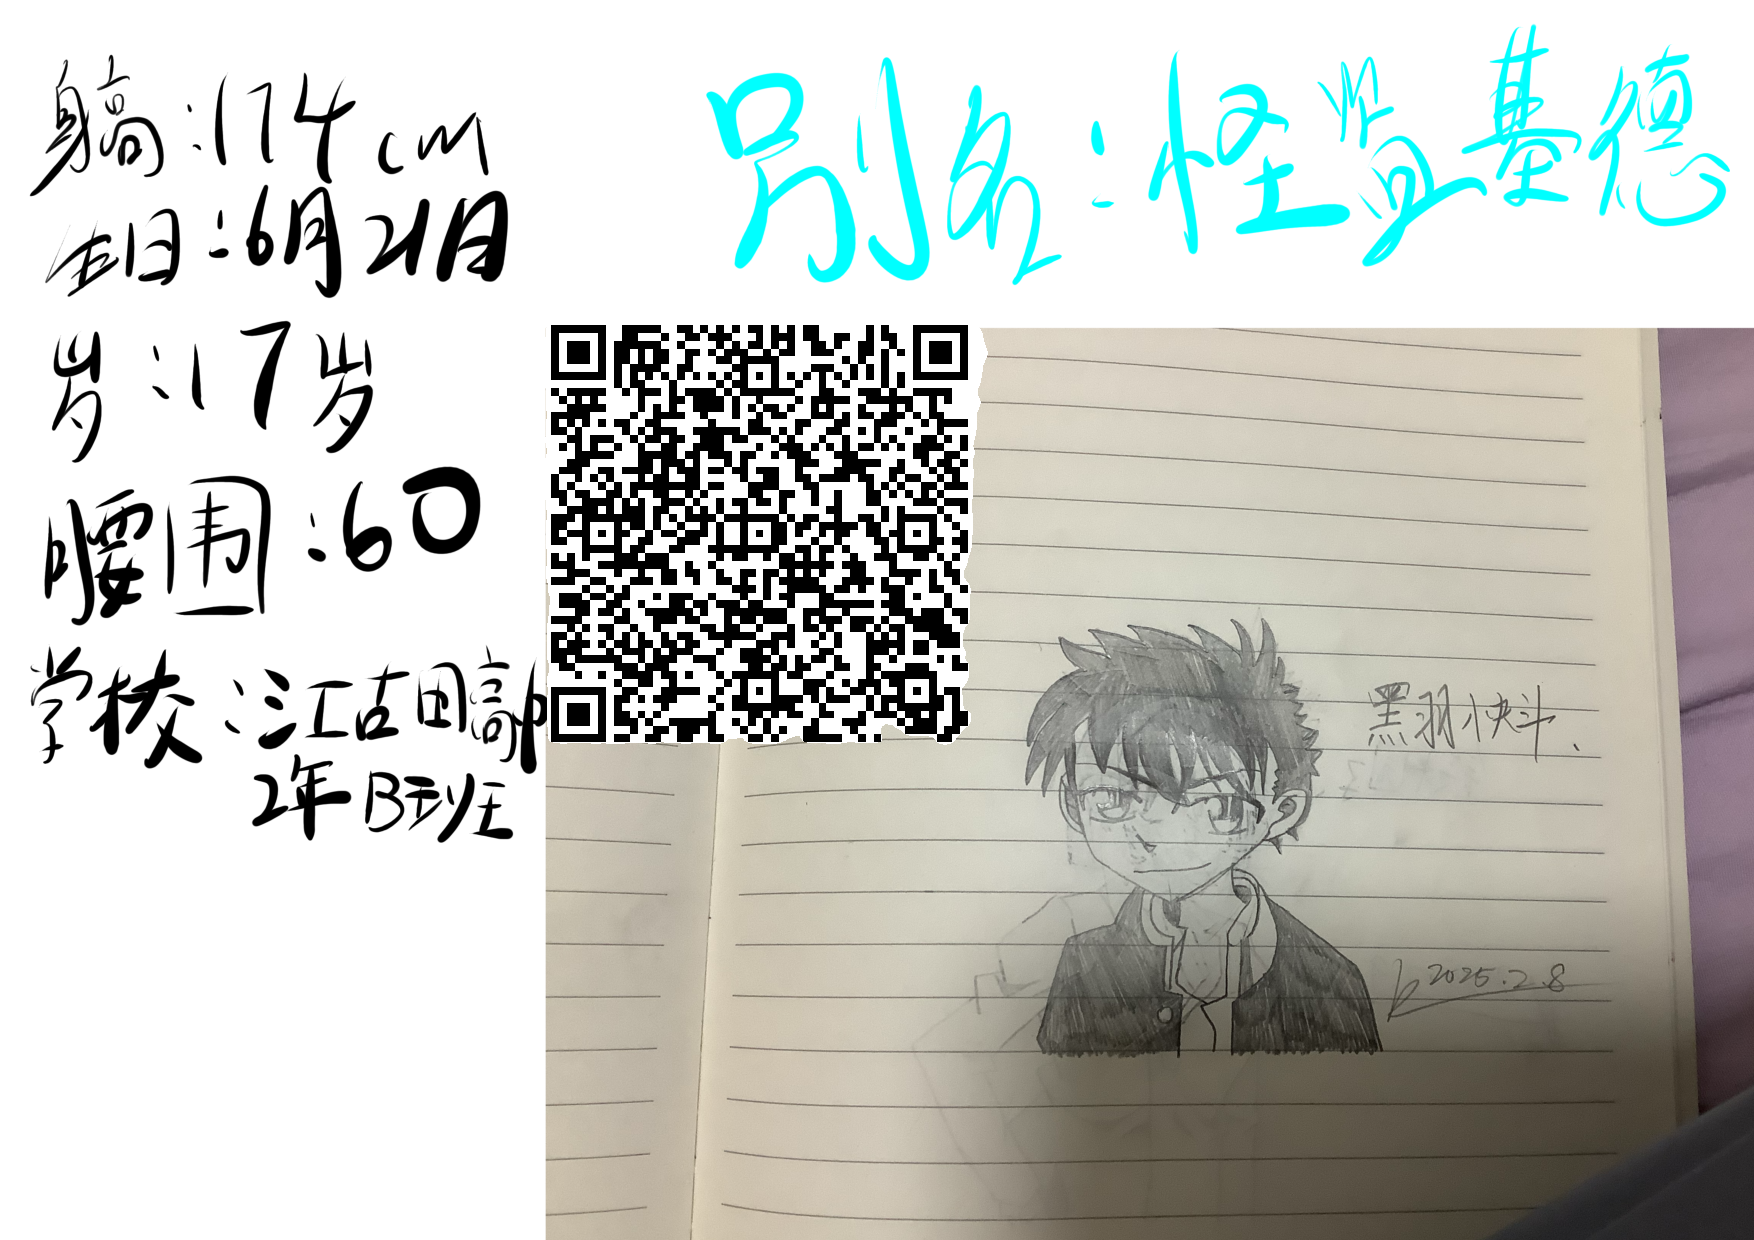 别名:怪盗基德
身高:174cm
生日:6月21日
岁:17岁
腰围:60
学校:江古田高中
2年B班
黑羽快斗、
2025.2.8